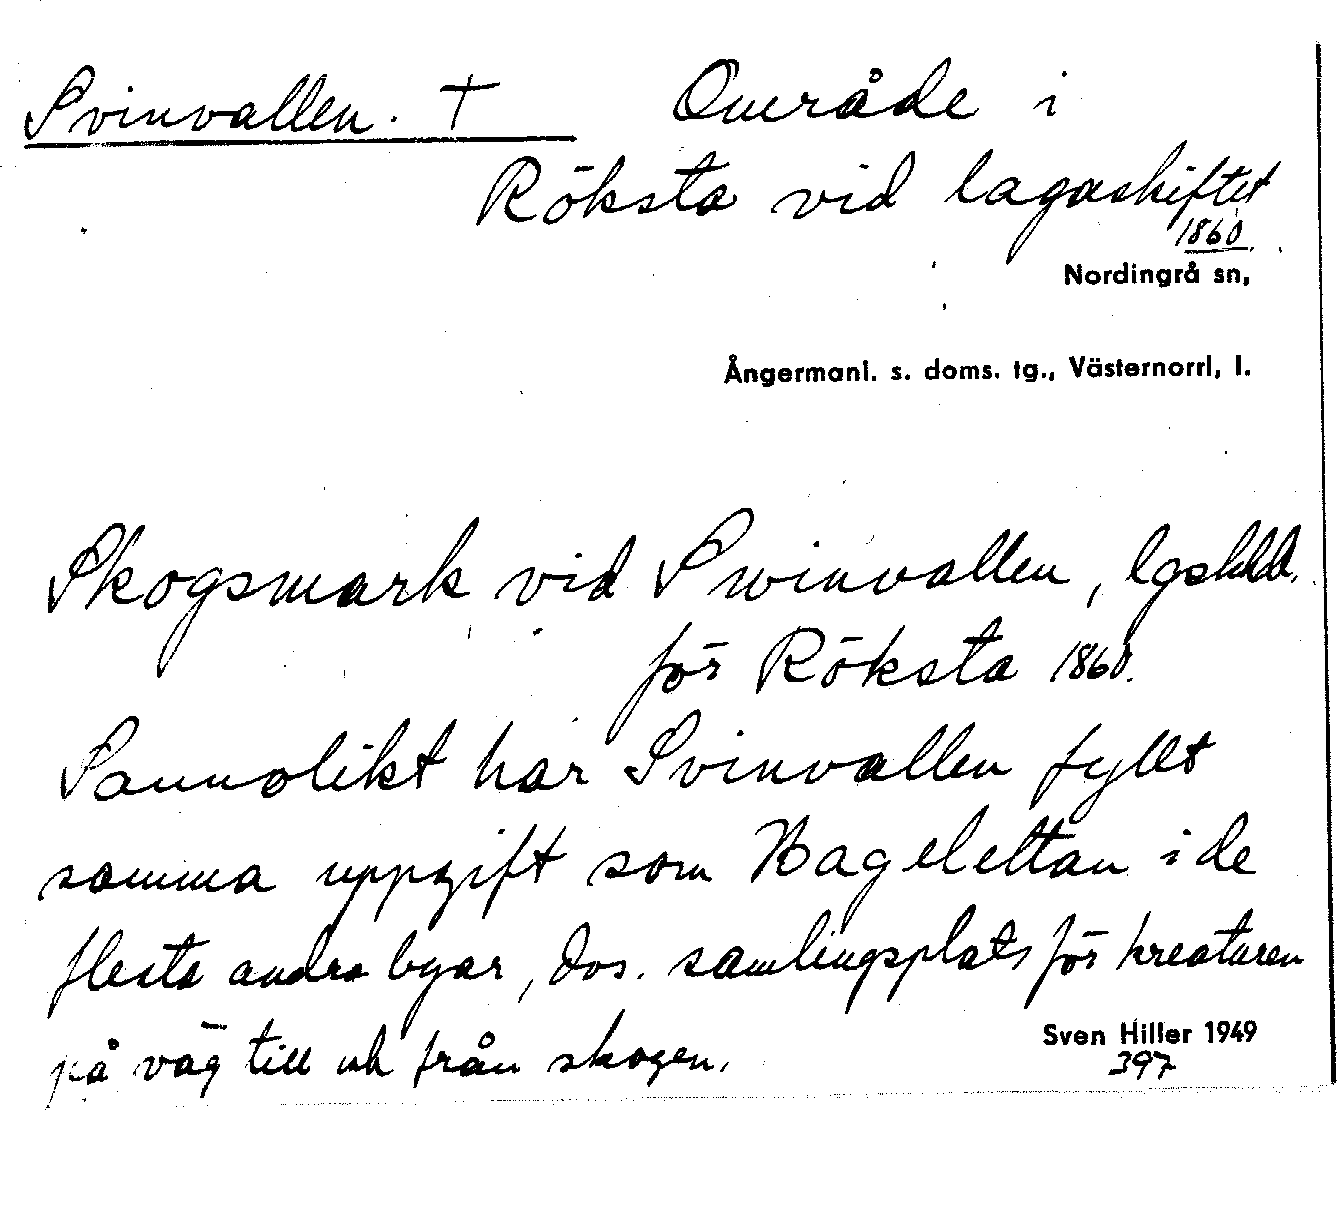 Svinvallen. † Område i
Röksta vid lagaskiftet
1860.
Nordingrå sn,
Ångermanl. s. doms. tg., Västernorrl, l.
Skogsmark vid Swinvallen,
för Röksta 1860.
Sannolikt har Svinvallen fyllt
samma uppgift som Hagelettan i de
flesta andra byar, dvs. samlingsplats för kreaturen
på väg till och från skogen.
Sven Hiller 1949
397